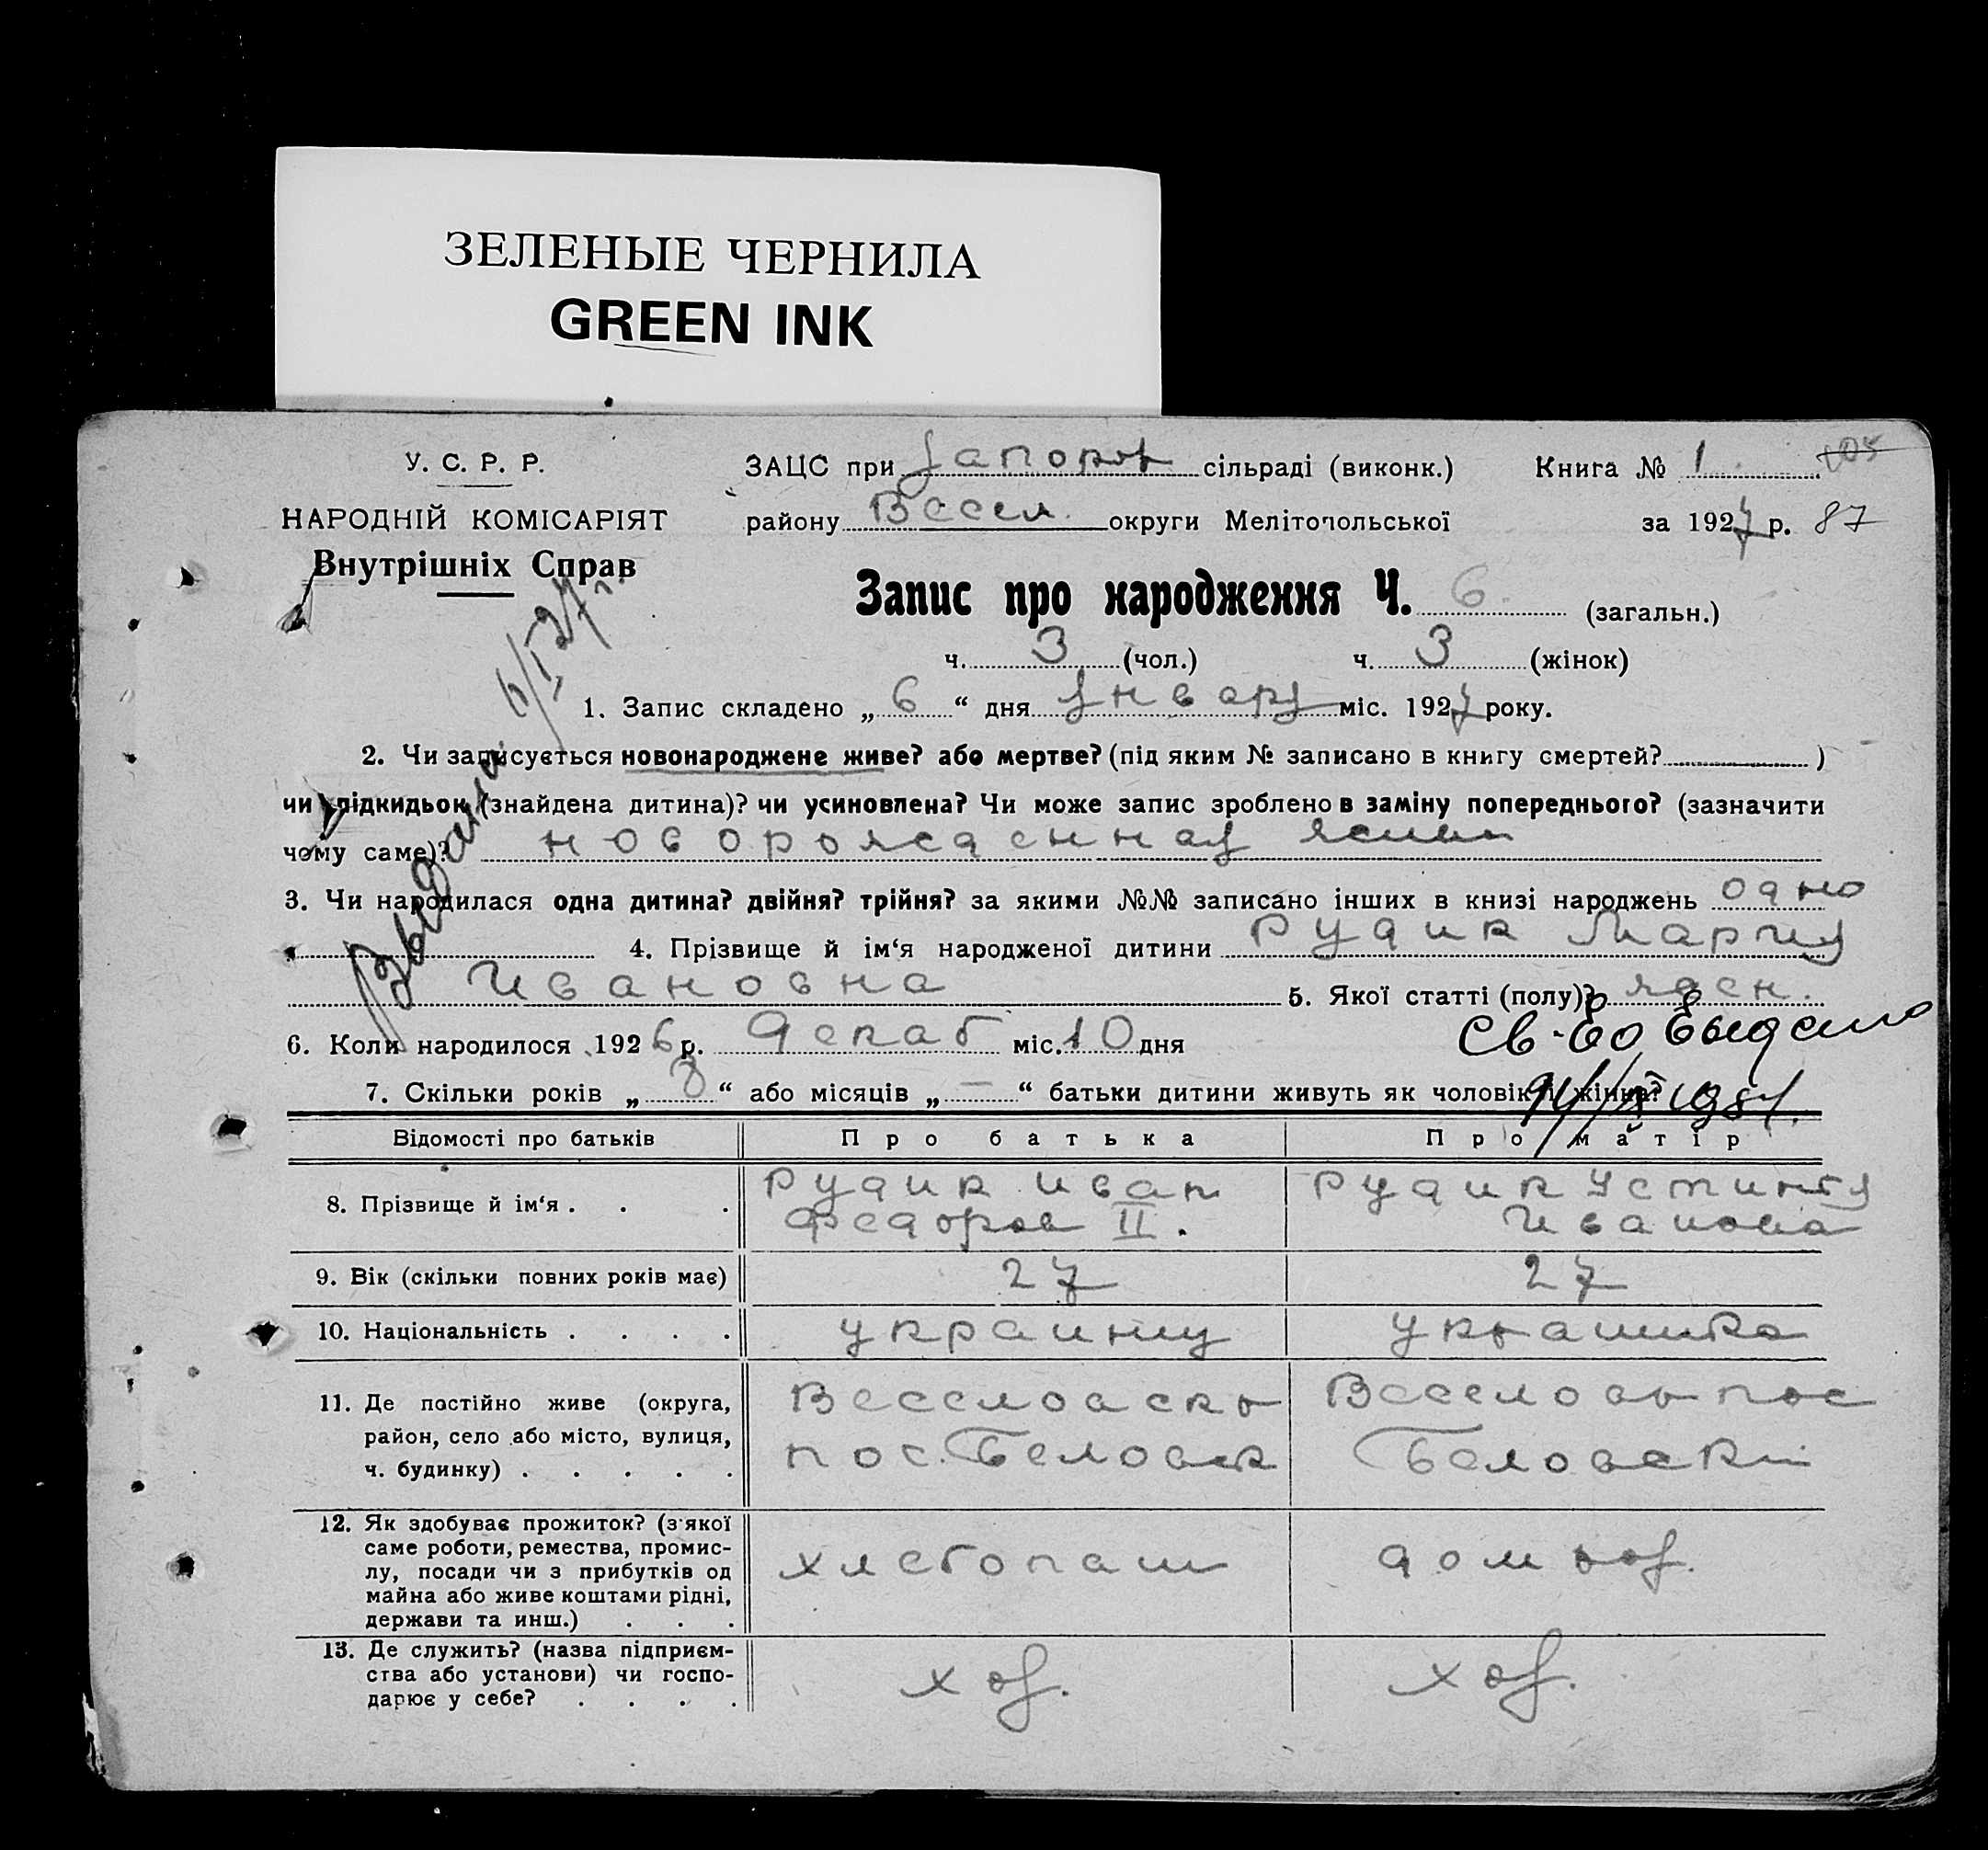 ЗЕЛЕНЫЕ ЧЕРНИЛА
GREEN INK
У. С. Р. Р.
НАРОДНІЙ КОМІСАРІЯТ
Внутрішніх Справ
ЗАЦС при Запоров сільраді (виконк.)
Книга № 1. 105
району Весел. округи Мелітопольської
за 1927 р. 87
Запис про народження Ч. 6 (загальн.)
ч. 3 (чол.) ч. 3 (жінок)
1. Запис складено „ 6 “ дня января міс. 1927 року.
2. Чи записується новонароджене живе? або мертве? (під яким № записано в книгу смертей? )
чи підкидьок (знайдена дитина)? чи усиновлена? Чи може запис зроблено в заміну попереднього? (зазначити
чому саме)? новорожденная живы
3. Чи народилася одна дитина? двійня? трійня? за якими №№ записано інших в книзі народжень одно
4. Прізвище й ім‘я народженої дитини Рудик Мария
Ивановна 5. Якої статті (полу)? жен.
6. Коли народилося 1926 р. декаб міс. 10 дня
7. Скільки років „ 8 “ або місяців „ — “ батьки дитини живуть як чоловік і жінка?
Выдана 6/I 27 г.
Св-во выдано
Відомості про батьків
Про батька
Про матір
8. Прізвище й ім‘я . . .
Рудик Иван
Федоров II.
Рудик Устинья
Иванова
9. Вік (скільки повних років має)
27
27
10. Національність . . . .
украинц
украинка
11. Де постійно живе (округа,
район, село або місто, вулиця,
ч. будинку) . . . . .
Веселовск
пос. Беловск
Веселовск пос
Беловский
12. Як здобуває прожиток? (з якої
саме роботи, ремества, промис-
лу, посади чи з прибутків од
майна або живе коштами рідні,
держави та инш.) . . .
хлебопаш
дом хоз.
13. Де служить? (назва підприєм-
ства або установи) чи госпо-
дарює у себе? . . . .
хоз.
хоз.